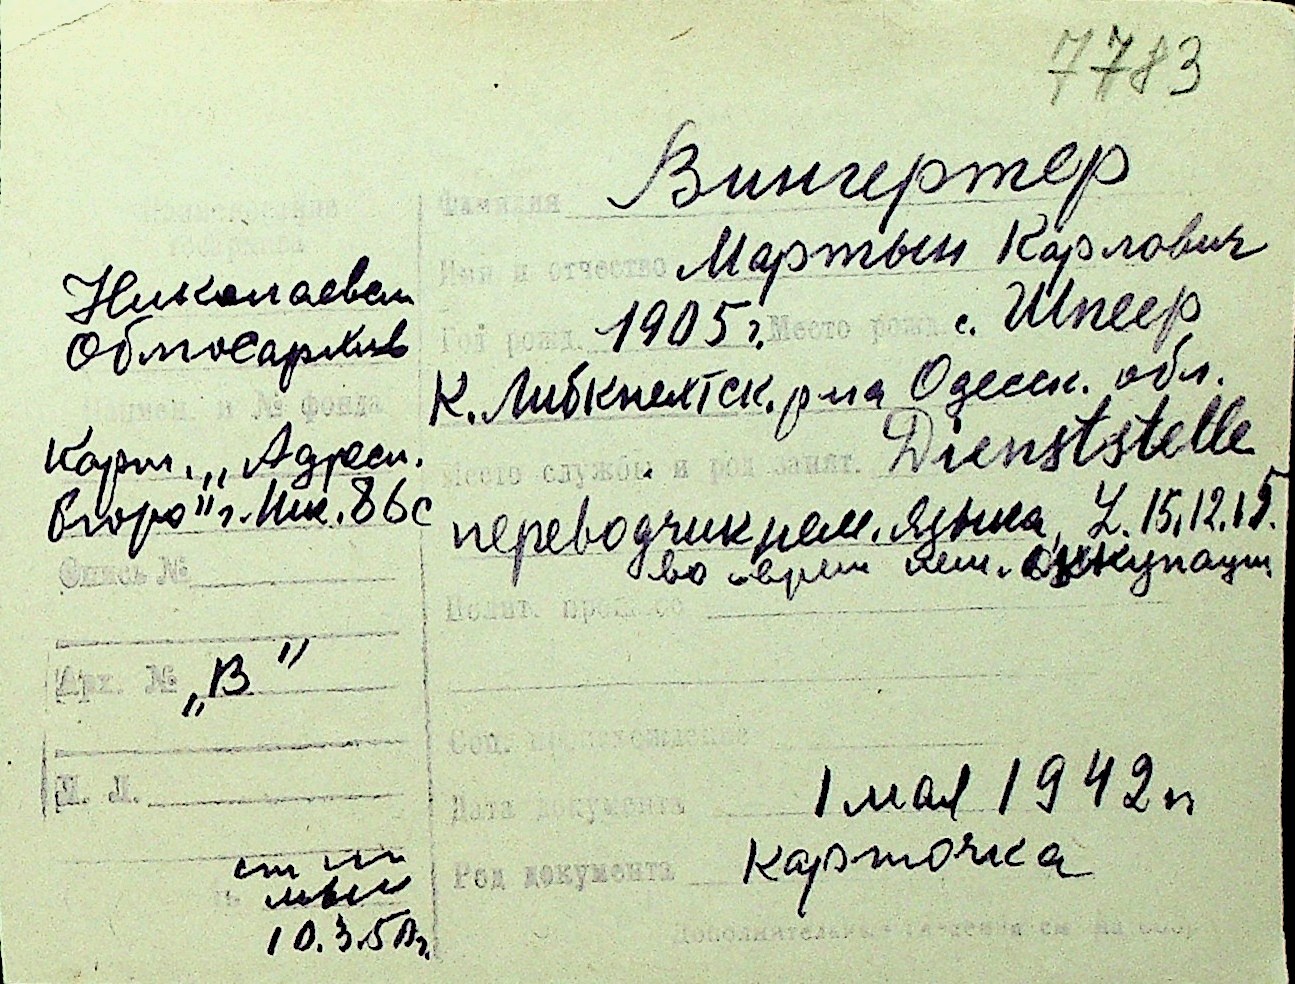 7783
Фамилия Вингертер
Имя и отчество Мартын Карлович
Год рожд. 1905 г. Место рожд. с. Шпеер
К. Либкнехтск. р-на Одесск. обл.
Место службы и род занят. Dienststelle
переводчик нем. языка, 15.12.
во время нем. оккупации
Полит. прошлое
Соц. происхождение
Дата документа 1 мая 1942 г.
Род документа карточка
Дополнительные сведения см. на обор.
Наименование
госархива
Николаевск.
Облгосархив
Наимен. и № фонда
Карт. „Адресн.
бюро" г. Ник. 86с
Опись №
Арх. № „В"
Л. Л.
10.3.50 г.